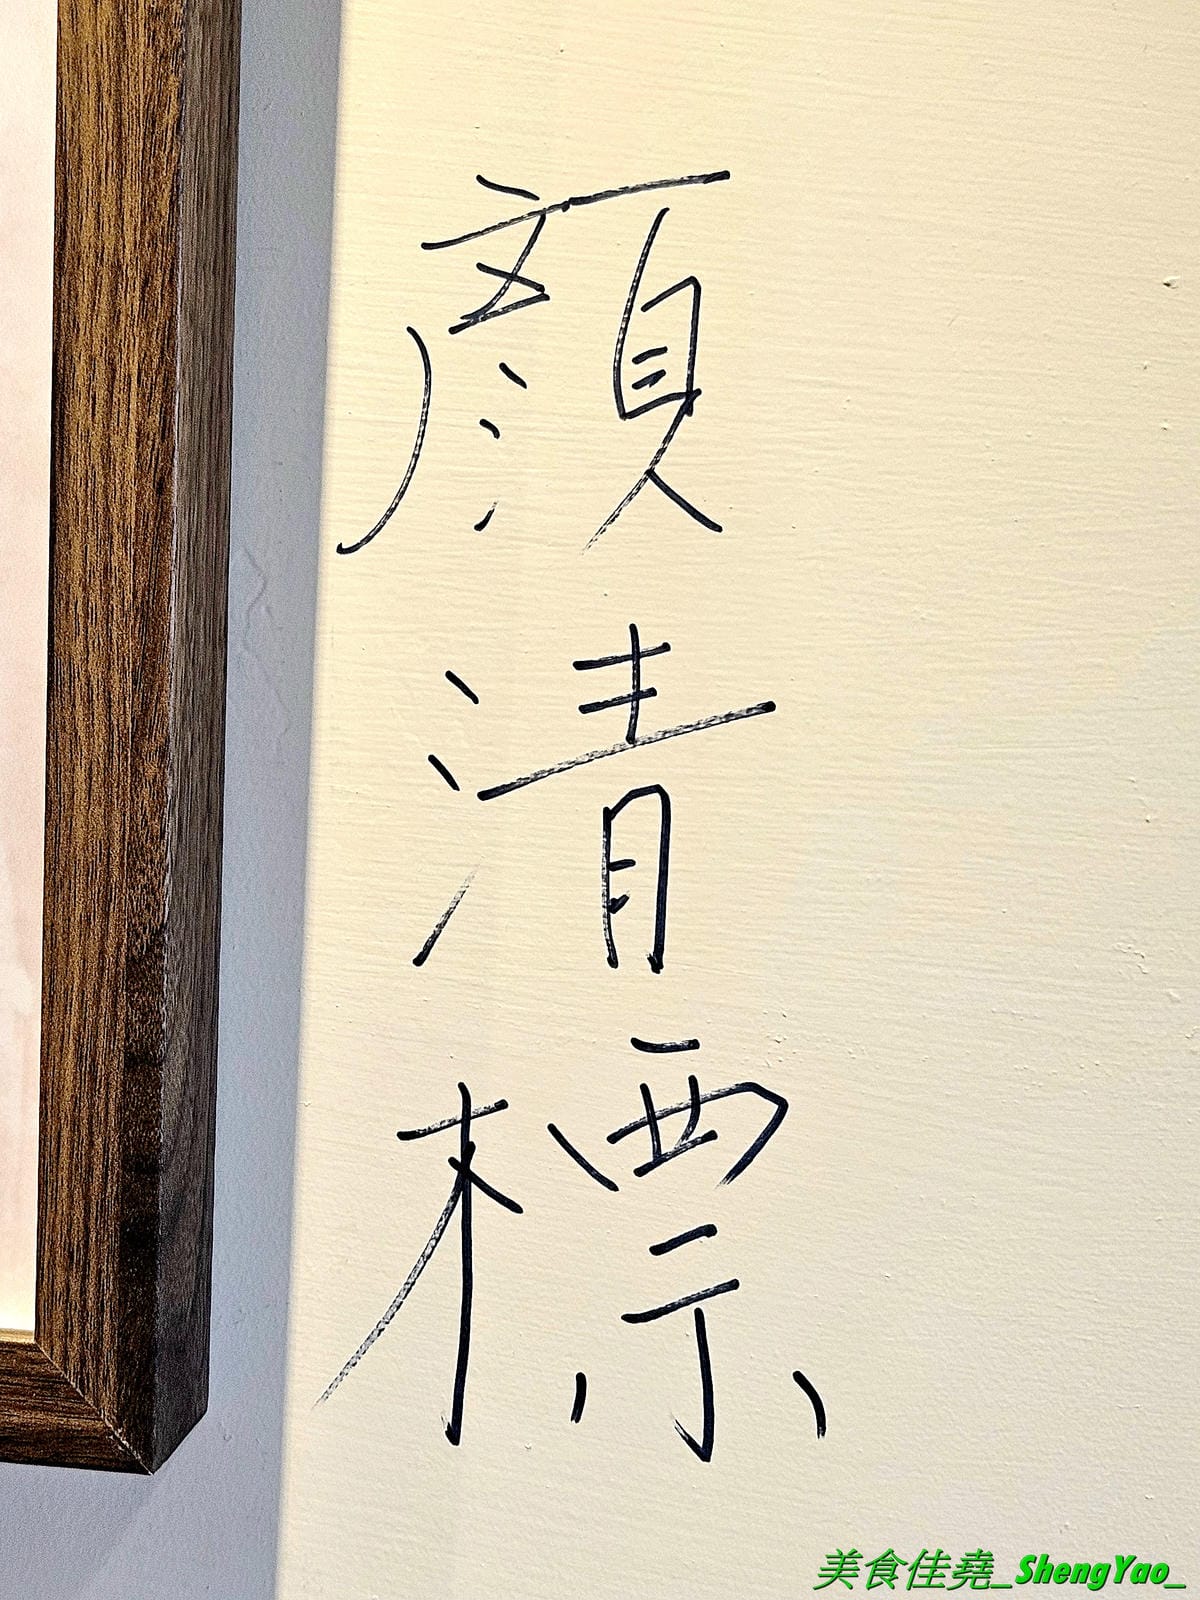 顏清標
美食佳堯_ShengYao_